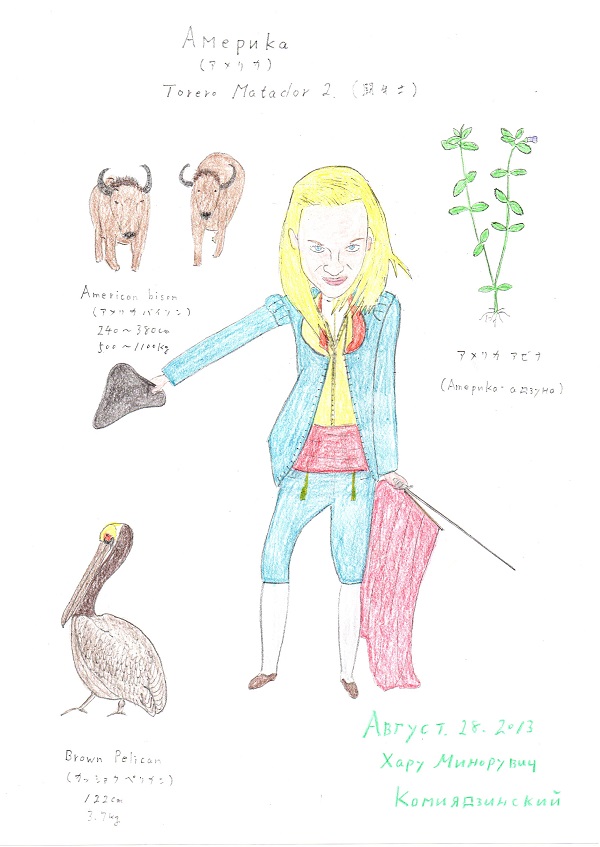 Америка
(アメリカ)
Torero Matador 2. (闘牛士)
American bison
(アメリカバイソン)
240~380cm
500~1100kg
アメリカ アゼナ
(Америка-адзуна)
Brown Pelican
(カッショクペリカン)
122cm
3.7kg
Август. 28. 2013
Хару Минорувич
Комиядзинский